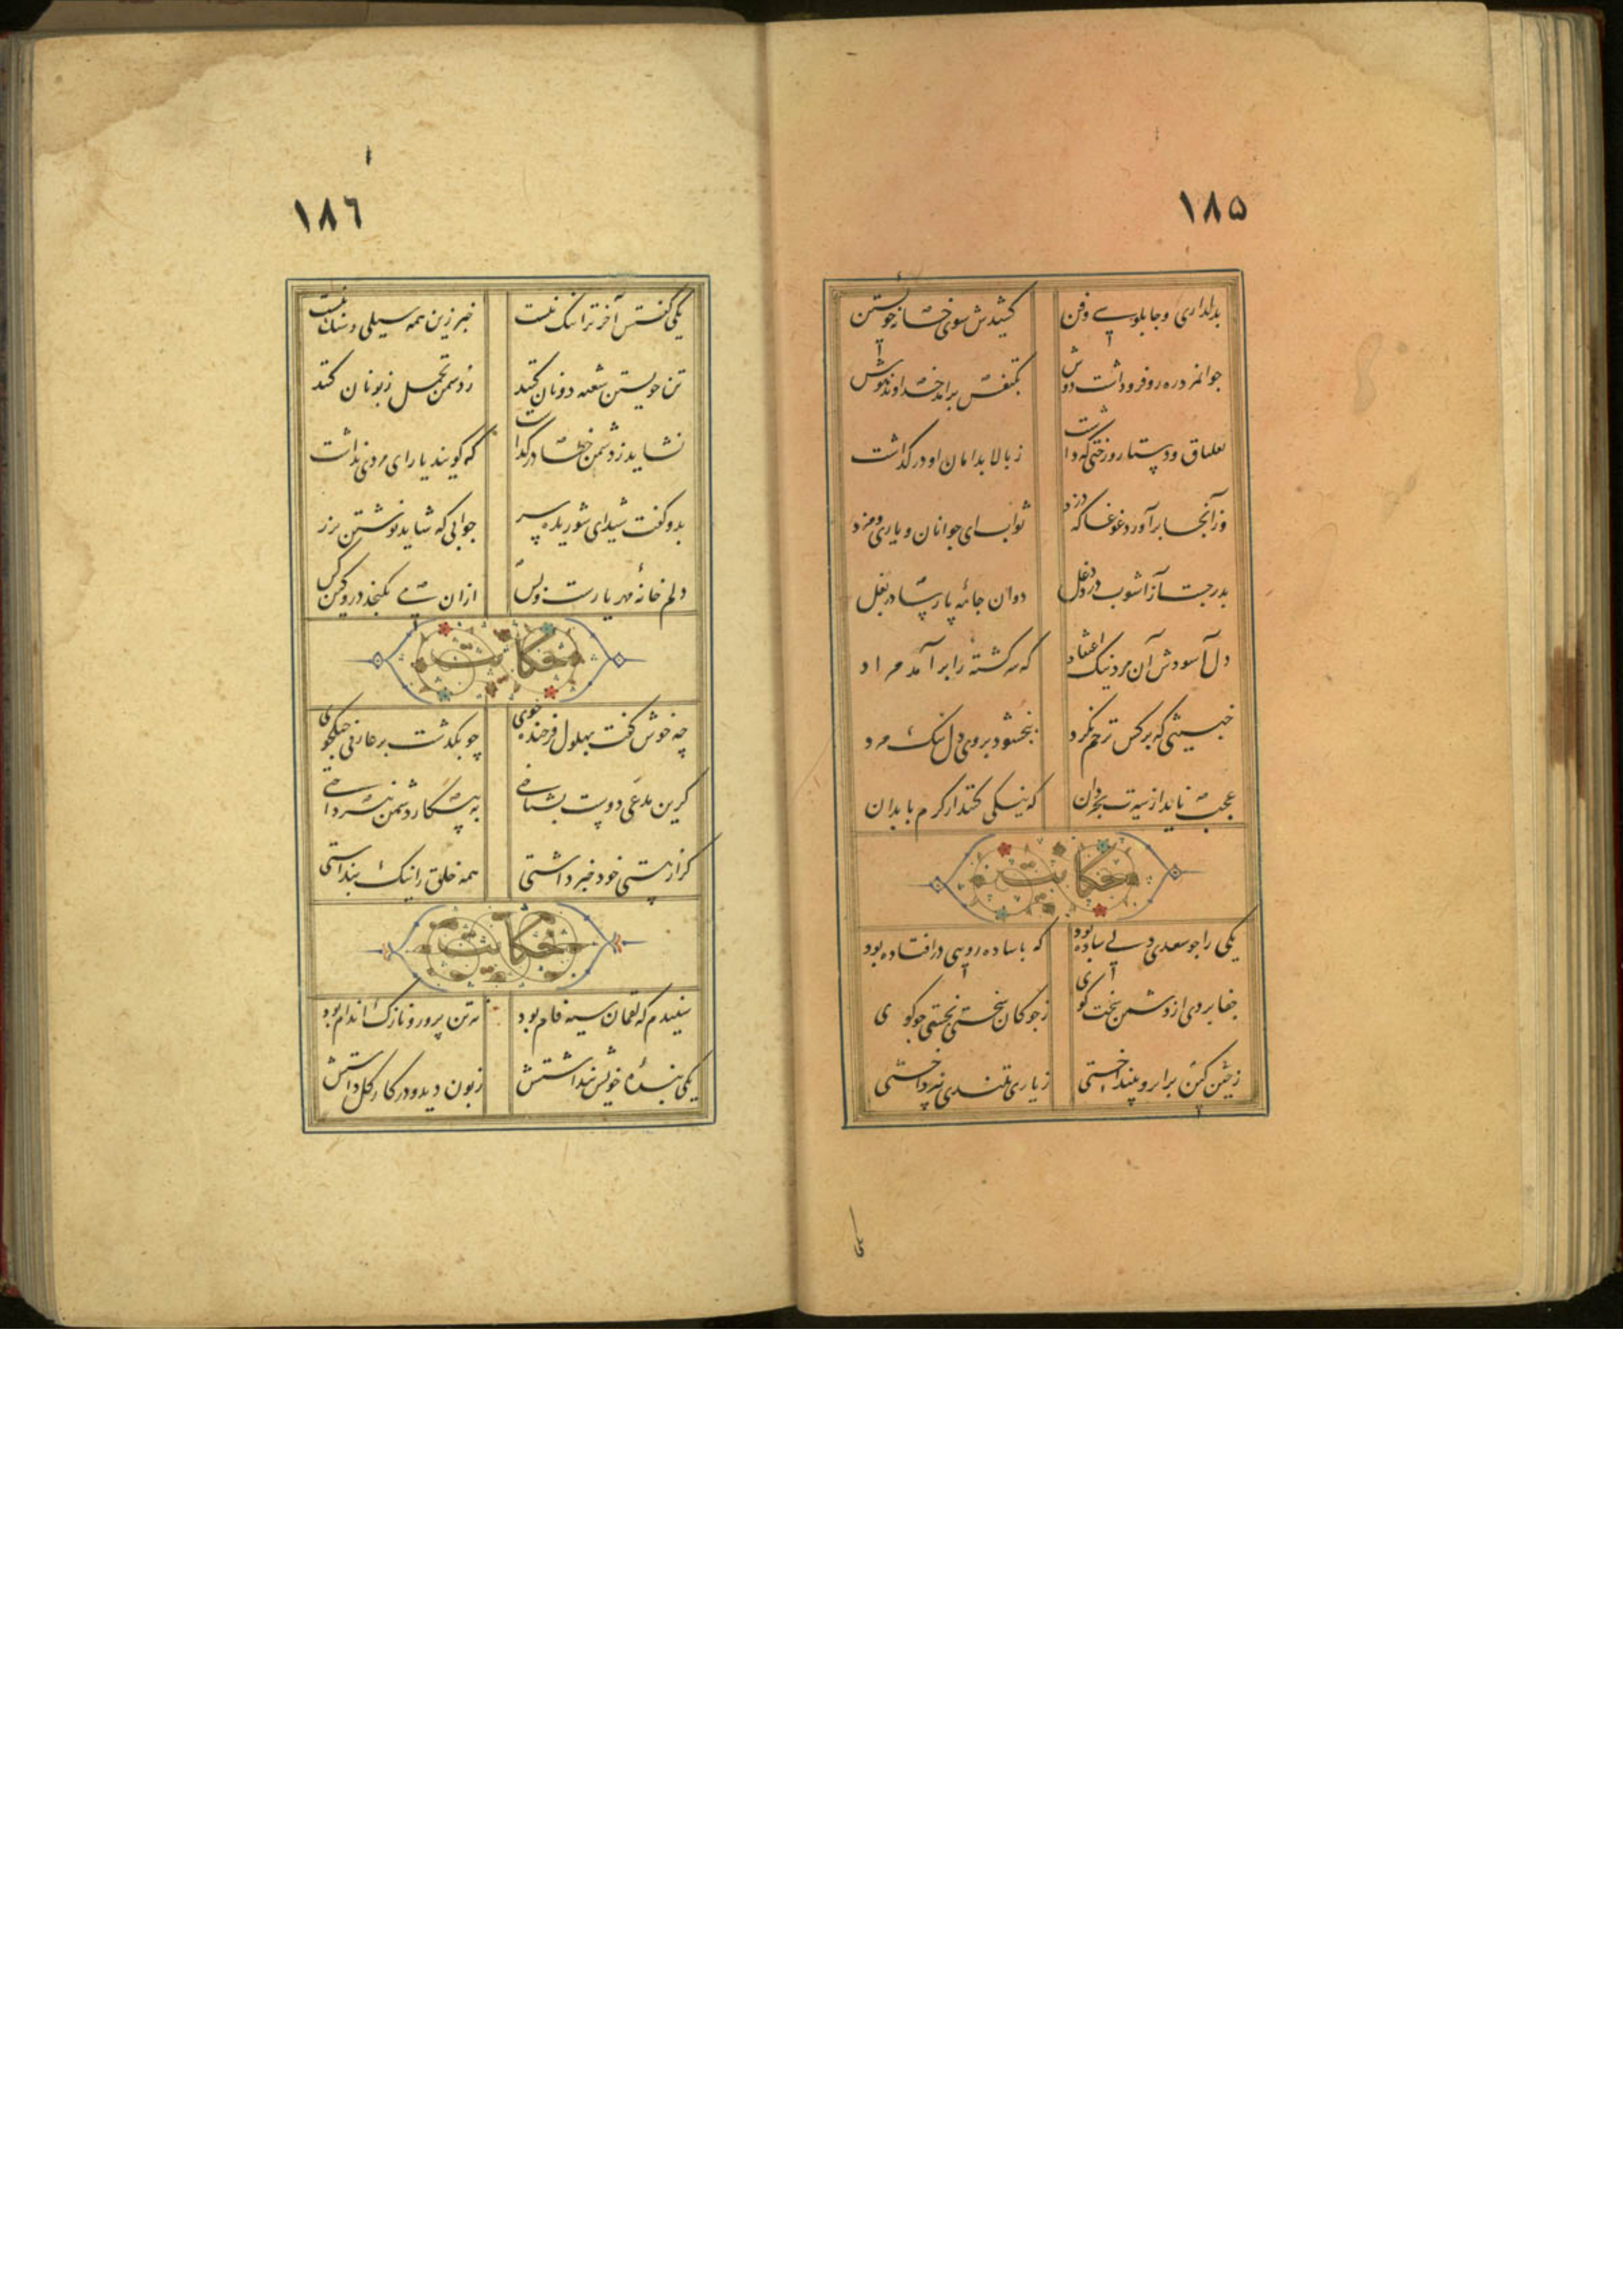 ۱۸۵
بدلداری و چابلوسی و فن کشیدش سوی خانهٔ خویشتن
جوانمرد ره رو فرو داشت دوش بکتفش برآمد خداوند هوش
بغلطاق و دستار و رختی که داشت ز بالا بدامان او در گذاشت
وز آنجا برآورد غوغا که دزد ثواب ای جوانان و یاری و مزد
بدر جست از آشوب دزد دغل دوان جامهٔ پارسا در بغل
دل آسوده شد آن مرد نیک اعتقاد که سرگشته را برآمد مراد
خبیثی که بر کس ترحم نکرد ببخشود بر وی دل نیک مرد
عجب ناید از سیرت بخردان که نیکی کنند از کرم با بدان
حکایت
یکی را چو سعدی دلی ساده بود که با ساده رویی در افتاده بود
جفا بردی از دشمن سخت گوی ز چوگان سختی بجستی چو گوی
ز چین کین بر ابرو نینداختی ز یاری بتندی نپرداختی
یکی
۱۸٦
یکی گفتش آخر ترا ننگ نیست خبر زین همه سیلی و سنگ نیست
تن خویشتن سغبه دونان کنند ز دشمن تحمل زبونان کنند
نشاید ز دشمن خطا در گذاشت که گویند یارای مردی نداشت
بدو گفت شیدای شوریده سر جوابی که شاید نوشتن بزر
دلم خانهٔ مهر یارست و بس ازان می نگنجد درو کین کس
حکایت
چه خوش گفت بهلول فرخنده خوی چو بگذشت بر عارفی جنگجوی
گرین مدعی دوست بشناختی به پیکار دشمن نپرداختی
گر از هستی خود خبر داشتی همه خلق را نیک پنداشتی
حکایت
شنیدم که لقمان سیه فام بود نه تن پرور و نازک اندام بود
یکی بندهٔ خویش پنداشتش زبون دید و در کار گل داشتش